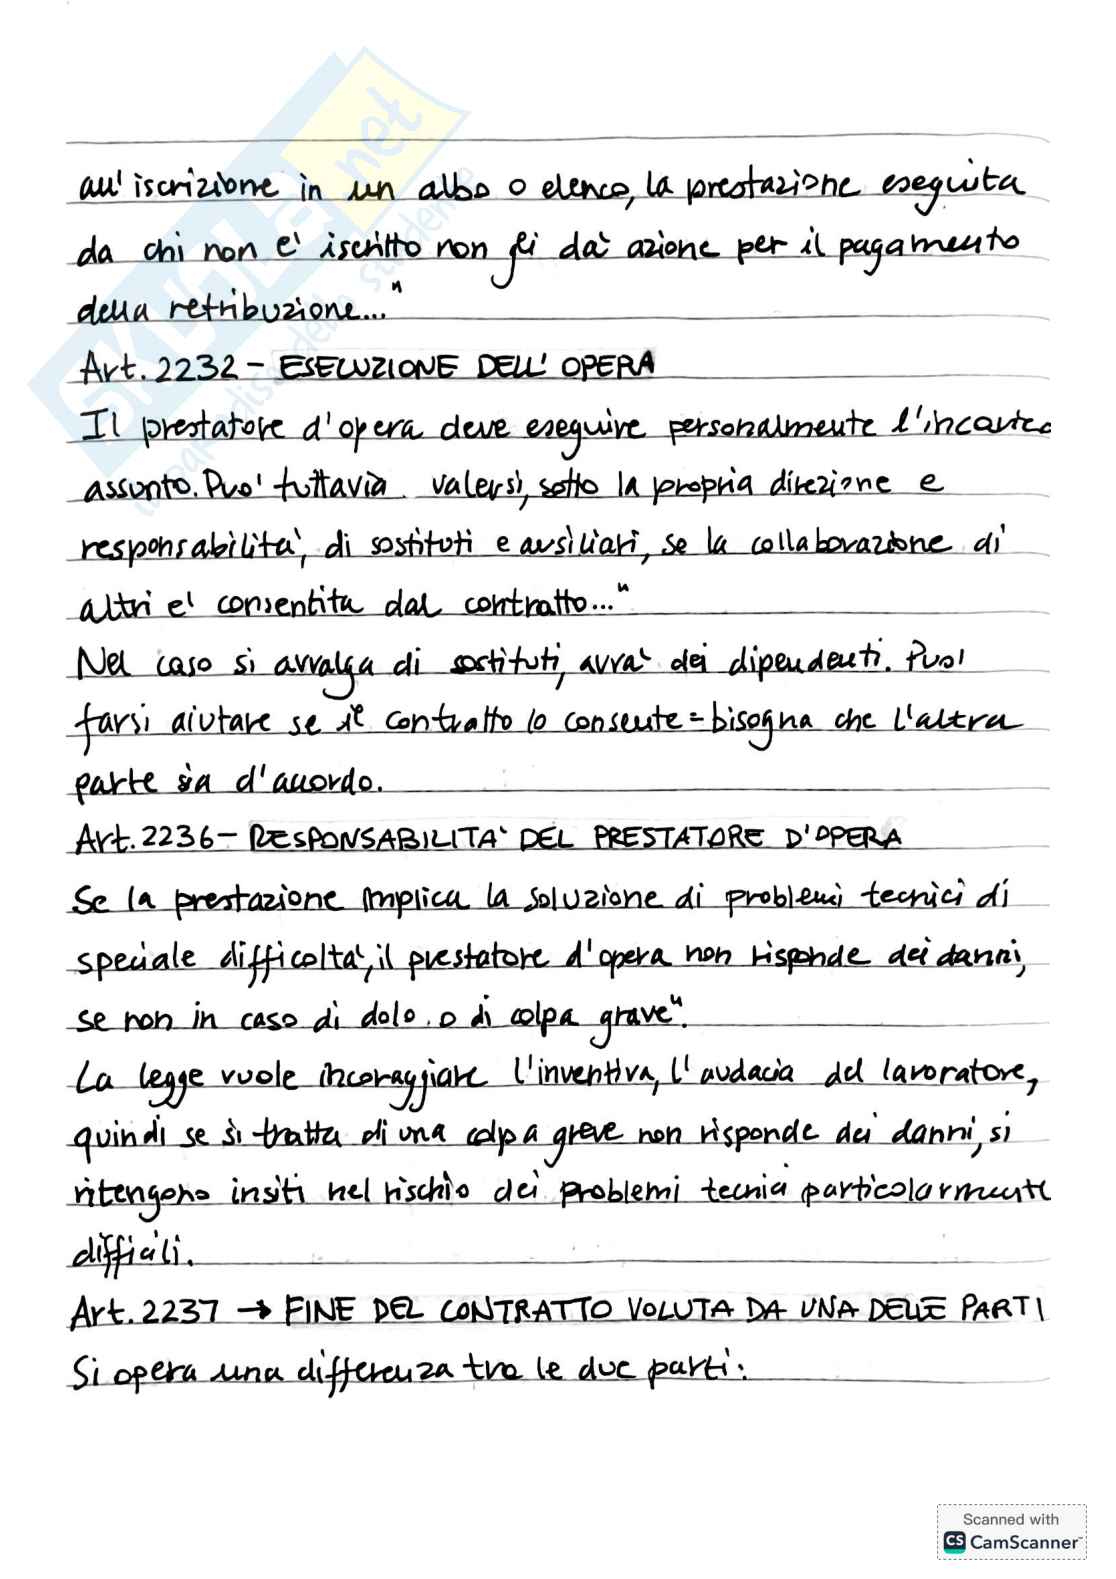 all'iscrizione in un albo o elenco, la prestazione eseguita
da chi non e' iscritto non gli dà azione per il pagamento
della retribuzione..."
Art. 2232 - ESECUZIONE DELL' OPERA
Il prestatore d'opera deve eseguire personalmente l'incarico
assunto. Puo' tuttavia valersi, sotto la propria direzione e
responsabilità, di sostituti e ausiliari, se la collaborazione di
altri e' consentita dal contratto..."
Nel caso si avvalga di sostituti, avra' dei dipendenti. Puo'
farsi aiutare se il contratto lo consente = bisogna che l'altra
parte sia d'accordo.
Art. 2236 - RESPONSABILITA' DEL PRESTATORE D'OPERA
Se la prestazione implica la soluzione di problemi tecnici di
speciale difficolta', il prestatore d'opera non risponde dei danni,
se non in caso di dolo o di colpa grave".
La legge vuole incoraggiare l'inventiva, l'audacia del lavoratore,
quindi se si tratta di una colpa greve non risponde dei danni, si
ritengono insiti nel rischio dei problemi tecnici particolarmente
difficili.
Art. 2237 → FINE DEL CONTRATTO VOLUTA DA UNA DELLE PARTI
Si opera una differenza tra le due parti:
SKUOLA.net
il paradiso dello studente
Scanned with
CS CamScanner